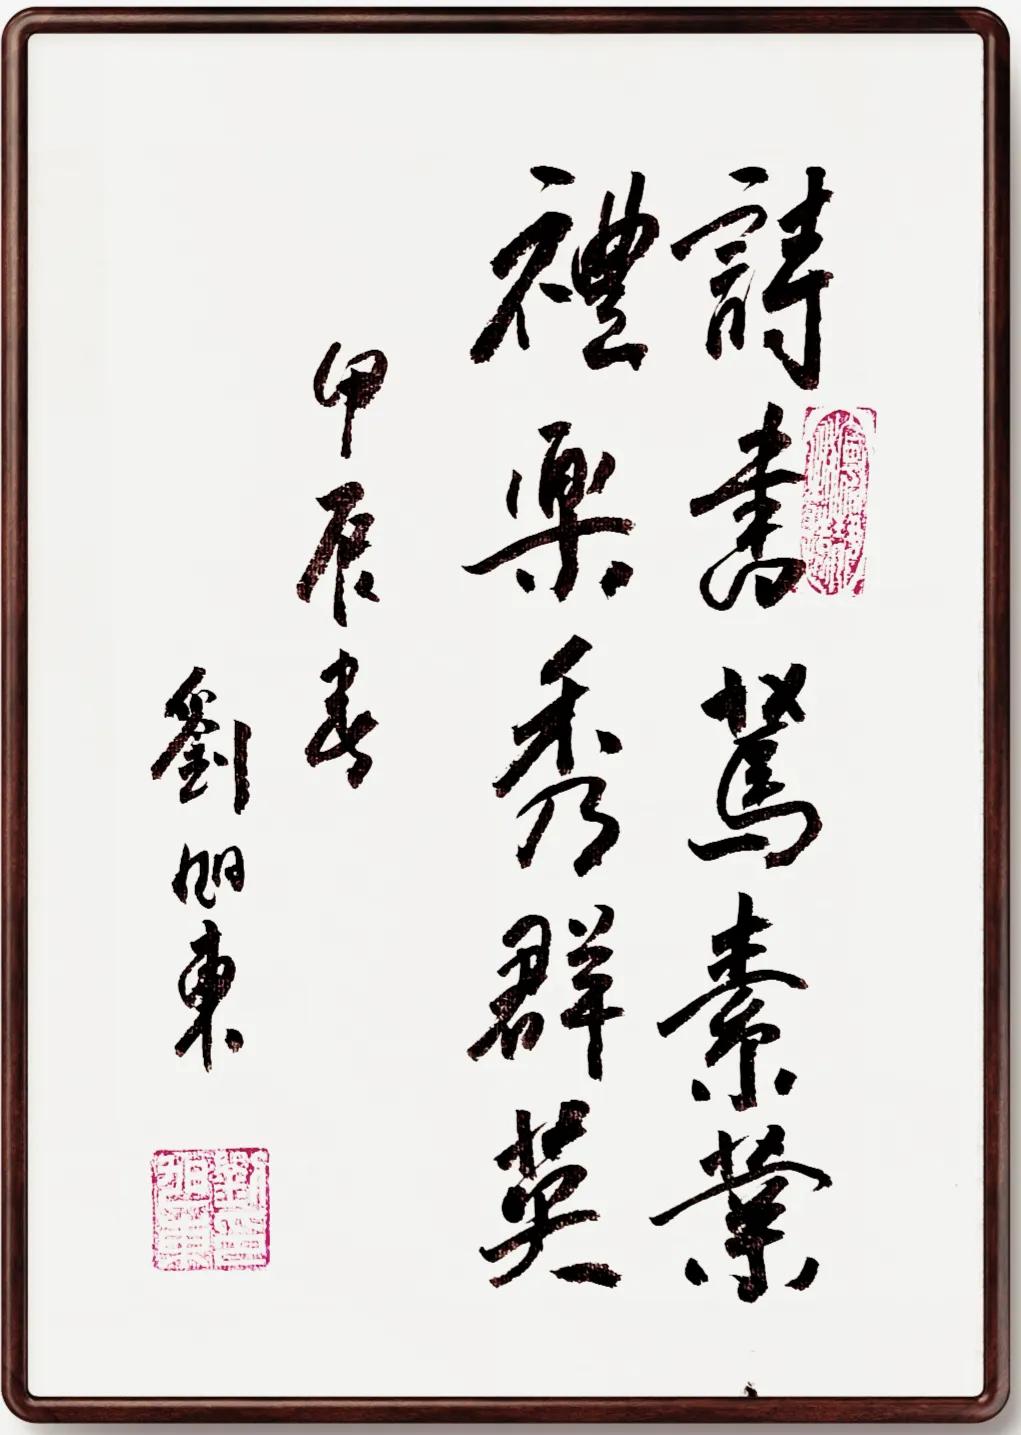 詩書篤素業
禮樂秀群英
甲辰春
劉旭東
劉印
旭東